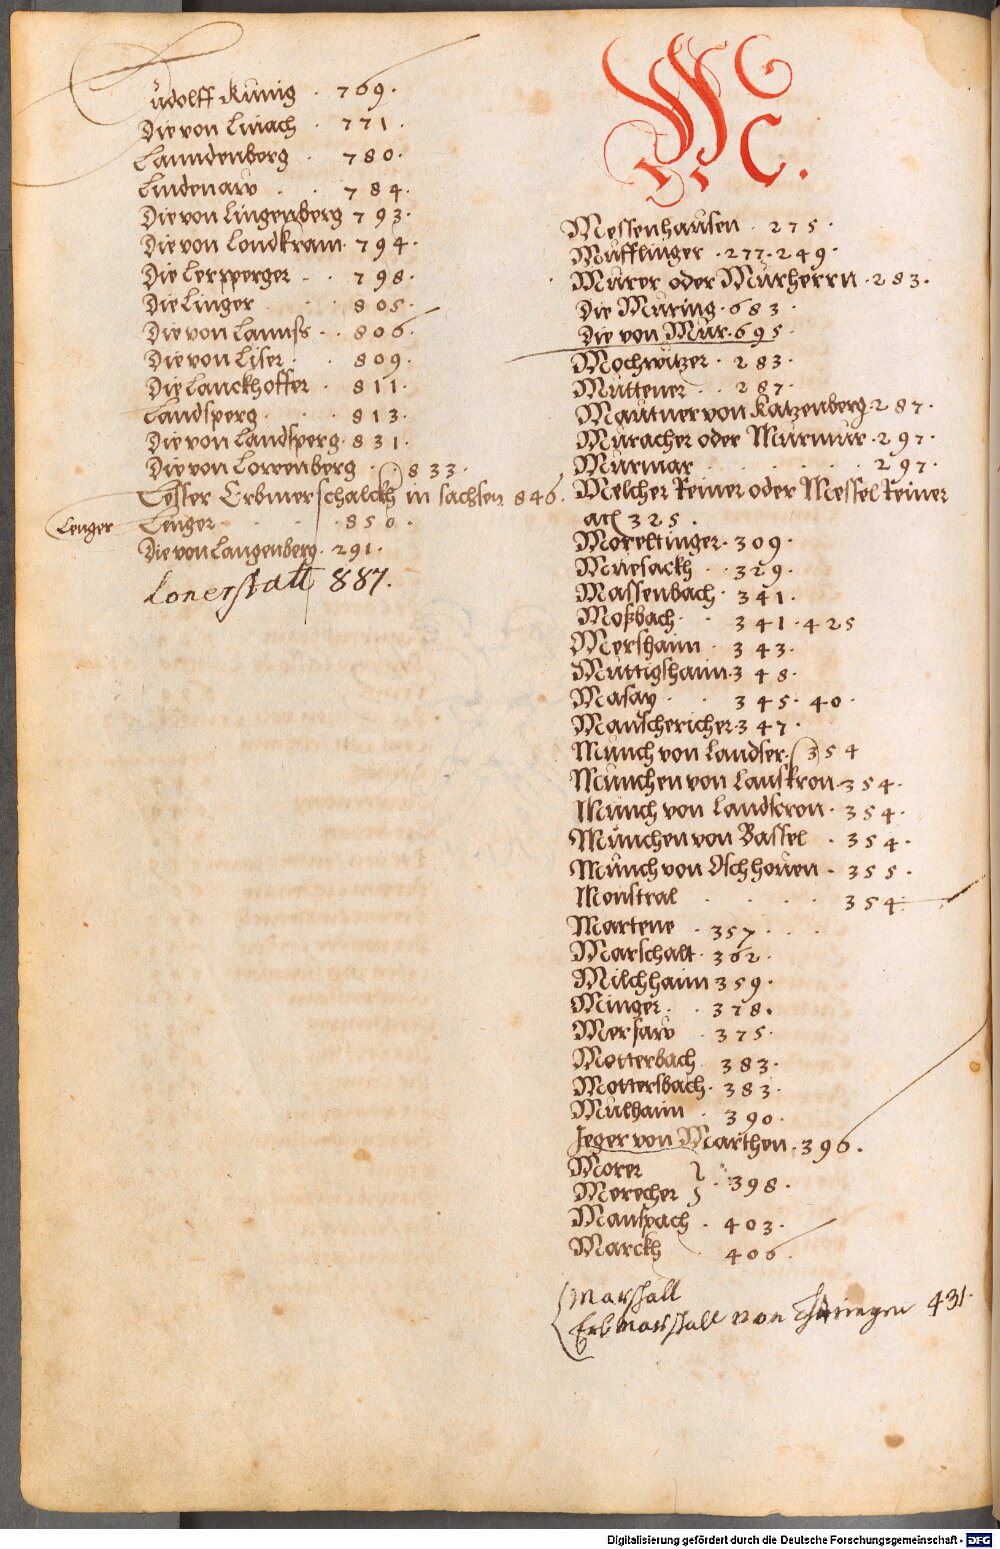 Rudolff Kunig . 769.
Die von Linach . 771.
Lanndenberg . 780.
Lindenaw . . 784.
Die von Lingenberg 793.
Die von Londkram. 794.
Die Lerpperger . . 798.
Die Linger . . . 805.
Die von Lannss . . 806.
Die von Liser . . 809.
Die Lanckhoffer . 811.
Landsperg . . . 813.
Die von Landsperg. 831.
Die von Lowenberg . . 833.
Erbmerschalckh in sachsen 846.
Lenger Lenger . . . 850.
Die von Langenberg . 291.
Lonerstatt 887.
M.
Messenhausen . 275.
Mufflinger . 277. 249.
Murer oder Murherrn . 283.
Die Muring . 683.
Die von Mur . 695.
Mochwitzer . 283.
Muttener . . 287.
Mautner von Katzenberg. 287.
Muracher oder Murmur . 297.
Murmar . . . . . 297.
Melcher Reiner oder Messel Reiner
325.
Moreltinger . 309.
Muesackh . . 329.
Massenbach . 341.
Moßbach . . 341. 425
Mershaim . 343.
Muttigshaim. 348.
Masay . . 345. 40.
Manschericher. 347.
Munch von Landser. 354
Munchen von Lanskron. 354.
Munch von Landscron . 354.
Munchen von Bassel . 354.
Munch von Aschhouen . 355.
Monstral . . . . 354.
Martene . 357.
Marschalt . 362.
Milchhaim 359.
Minger . . 378.
Mersaw . 375.
Motterbach . 383.
Mottersbach . 383.
Mulhaim . 390.
Jeger von Marthen . 396.
Morer
Merecher . 398.
Manspach . 403.
Marckh . 406.
Marshall
Erbmarshall von Thüringen 431.
Digitalisierung gefördert durch die Deutsche Forschungsgemeinschaft - DFG